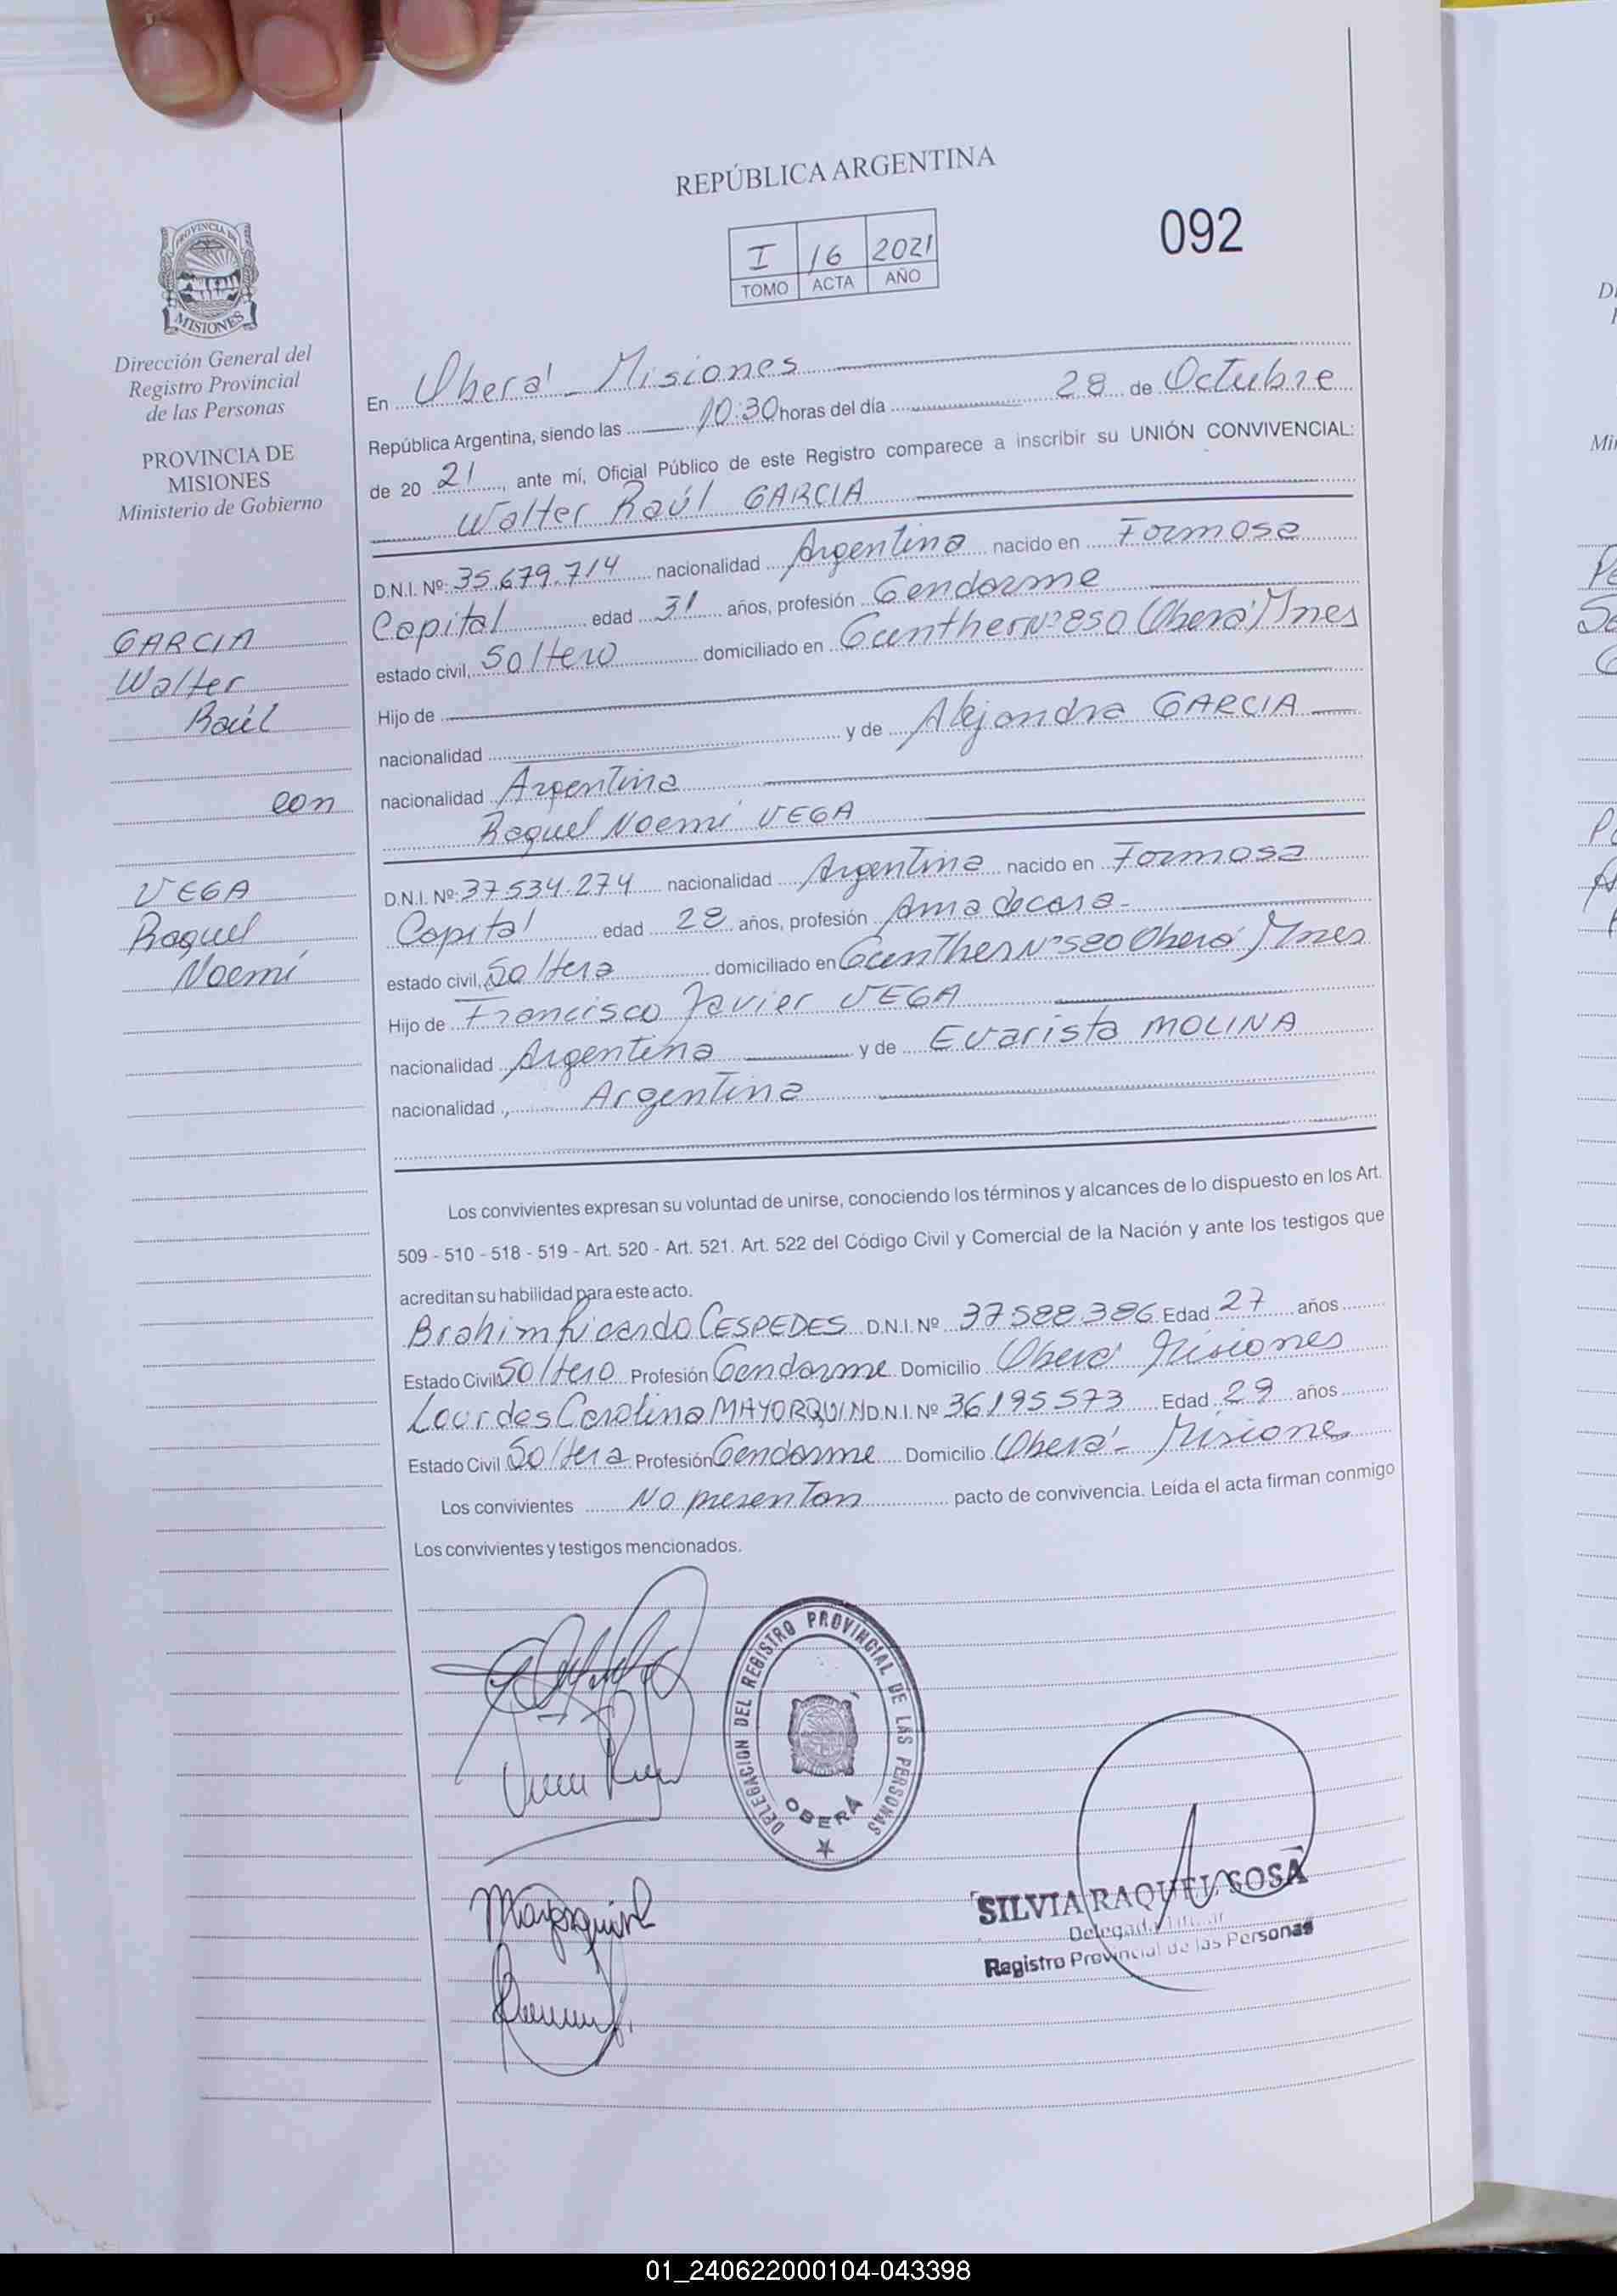 REPÚBLICA ARGENTINA
092
I 16 2021
TOMO ACTA AÑO
PROVINCIA DE
MISIONES
Dirección General del
Registro Provincial
de las Personas
PROVINCIA DE
MISIONES
Ministerio de Gobierno
GARCIA
Walter
Raúl
con
VEGA
Raquel
Noemí
En Oberá - Misiones
República Argentina, siendo las 10:30 horas del día 28 de Octubre
de 20 21, ante mí, Oficial Público de este Registro comparece a inscribir su UNIÓN CONVIVENCIAL:
Walter Raúl GARCIA
D.N.I. Nº: 35.679.714 nacionalidad Argentina nacido en Formosa
Capital edad 31 años, profesión Gendarme
estado civil, Soltero domiciliado en Gunther Nº 850 Oberá Mnes
Hijo de
nacionalidad y de Alejandra GARCIA
nacionalidad Argentina
Raquel Noemí VEGA
D.N.I. Nº: 37534.274 nacionalidad Argentina nacido en Formosa
Capital edad 28 años, profesión Ama de casa
estado civil, Soltera domiciliado en Gunther Nº Oberá Mnes
Hijo de Francisco Javier VEGA
nacionalidad Argentina y de Evarista MOLINA
nacionalidad, Argentina
Los convivientes expresan su voluntad de unirse, conociendo los términos y alcances de lo dispuesto en los Art.
509 - 510 - 518 - 519 - Art. 520 - Art. 521. Art. 522 del Código Civil y Comercial de la Nación y ante los testigos que
acreditan su habilidad para este acto.
Brahim Ricardo CESPEDES D.N.I. Nº 37588386 Edad 27 años
Estado Civil Soltero Profesión Gendarme Domicilio Oberá Misiones
Lourdes Carolina MAYORQUIN D.N.I. Nº 36195573 Edad 29 años
Estado Civil Soltera Profesión Gendarme Domicilio Oberá - Misiones
Los convivientes No presentan pacto de convivencia. Leída el acta firman conmigo
Los convivientes y testigos mencionados.
DELEGACION DEL REGISTRO PROVINCIAL DE LAS PERSONAS
OBERÁ
Mayorquin
SILVIA RAQUEL SOSA
Delegada Titular
Registro Provincial de las Personas
01_240622000104-043398